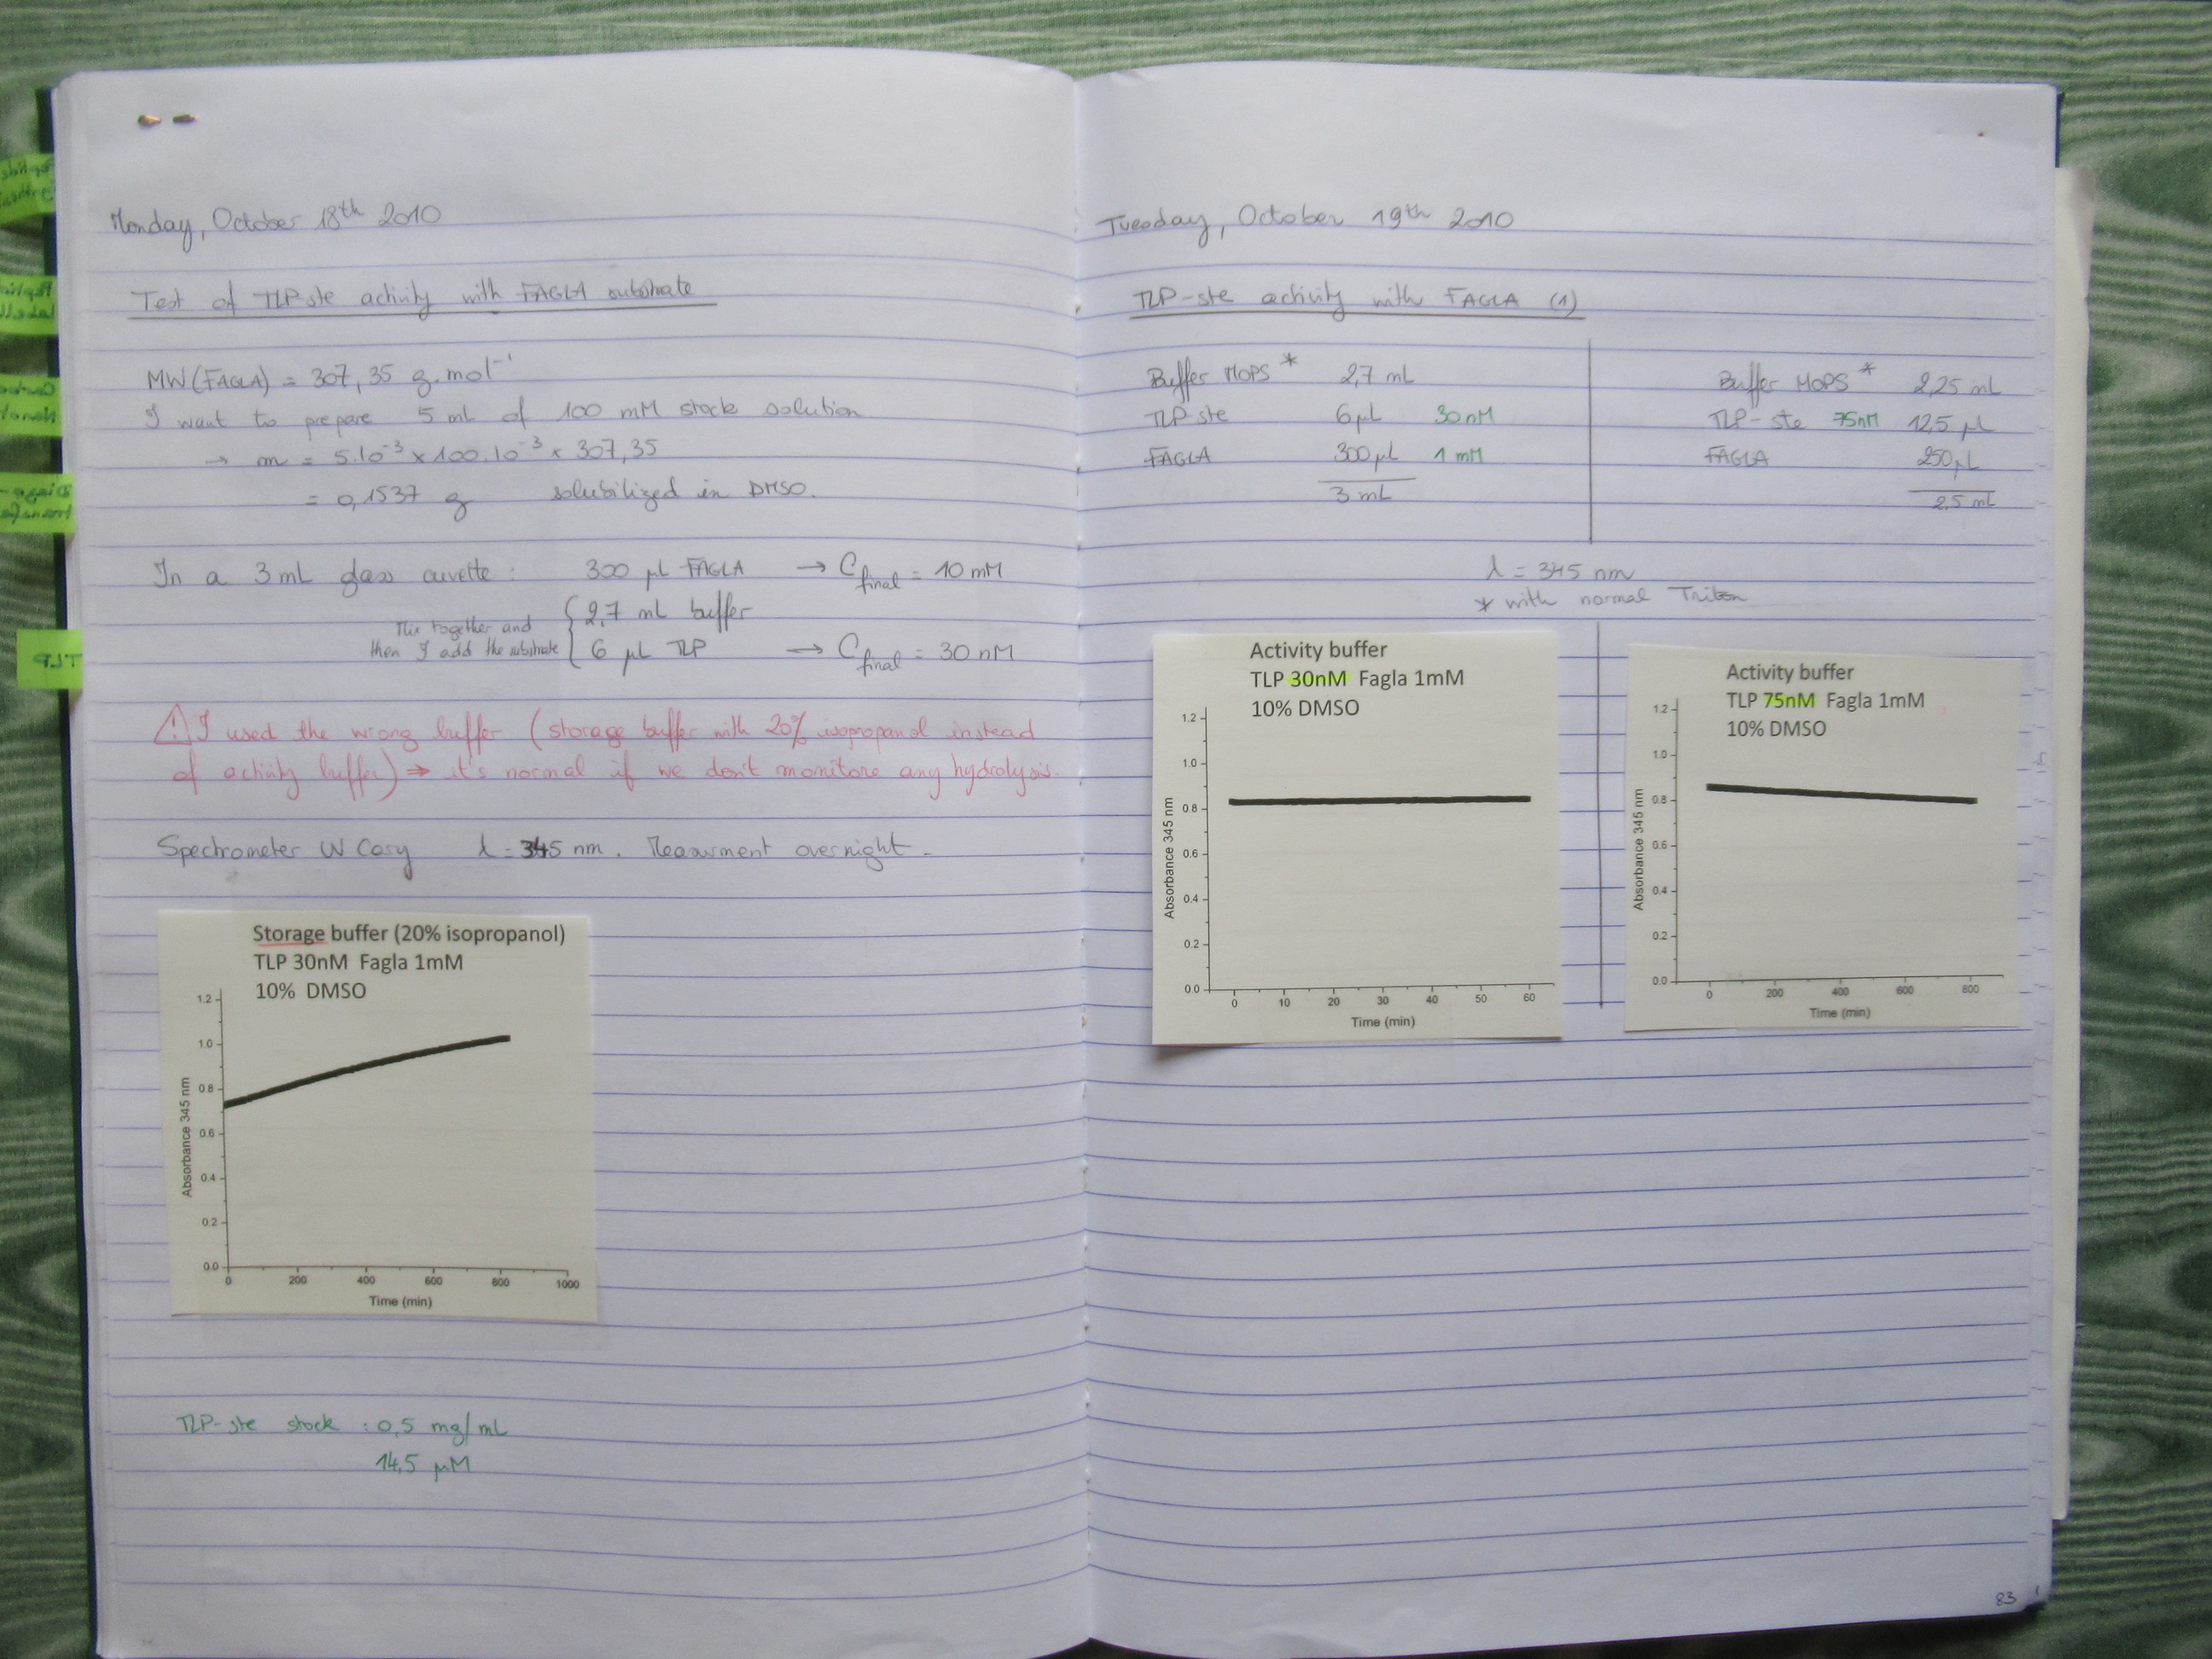 Monday, October 18th 2010
Test of TLP ste activity with FAGLA substrate
MW(FAGLA) = 307,35 g.mol⁻¹
I want to prepare 5 ml of 100 mM stock solution
→ m = 5.10⁻³ x 100.10⁻³ x 307,35
= 0,1537 g solubilized in DMSO.
In a 3 mL glass cuvette : 300 µL FAGLA → Cfinal = 10 mM
Mix together and then I add the substrate { 2,7 ml buffer
6 µL TLP → Cfinal = 30 nM
⚠ I used the wrong buffer (storage buffer with 20% isopropanol instead
of activity buffer) ⇒ it's normal if we don't monitore any hydrolysis.
Spectrometer UV Cary λ = 345 nm. Measurment overnight.
Storage buffer (20% isopropanol)
TLP 30nM Fagla 1mM
10% DMSO
1.2
1.0
0.8
0.6
0.4
0.2
0.0
Absorbance 345 nm
0 200 400 600 800 1000
Time (min)
TLP-ste stock : 0,5 mg/mL
14,5 µM
TLP
Tuesday, October 19th 2010
TLP-ste activity with FAGLA (1)
Buffer MOPS * 2,7 mL
TLP-ste 6µL 30nM
FAGLA 300µL 1 mM
3 mL
Buffer MOPS * 2,25 mL
TLP-ste 75nM 12,5 µL
FAGLA 250µL
2,5 mL
λ = 345 nm
* with normal Triton
Activity buffer
TLP 30nM Fagla 1mM
10% DMSO
1.2
1.0
0.8
0.6
0.4
0.2
0.0
Absorbance 345 nm
0 10 20 30 40 50 60
Time (min)
Activity buffer
TLP 75nM Fagla 1mM
10% DMSO
1.2
1.0
0.8
0.6
0.4
0.2
0.0
Absorbance 345 nm
0 200 400 600 800
Time (min)
83